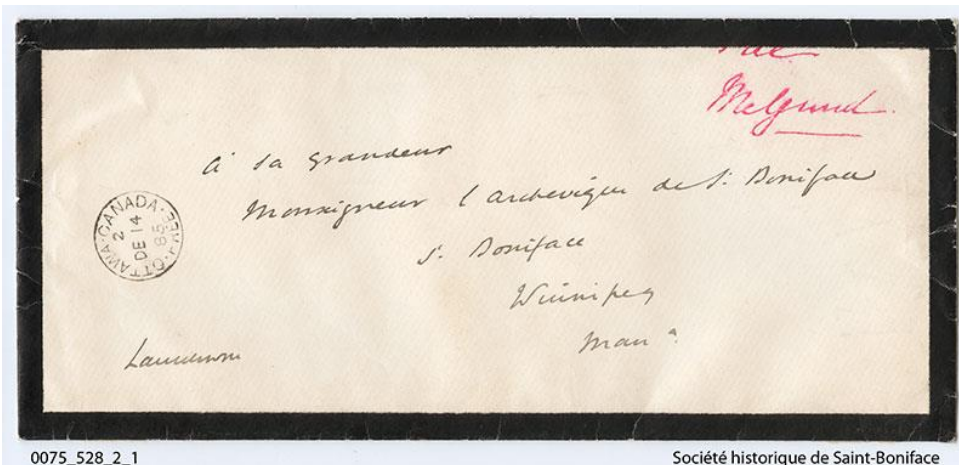 Melgund
à sa Grandeur
Monseigneur l'archevêque de St. Boniface
St. Boniface
Winnipeg
Man a.
OTTAWA·CANADA·FREE
2
DE 14
85
Lansdowne
0075_528_2_1
Société historique de Saint-Boniface